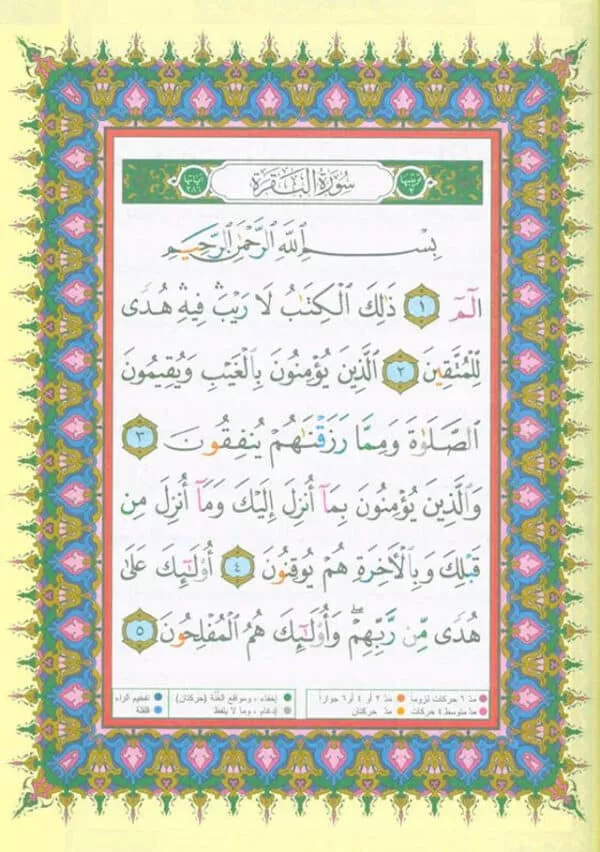 ترتيبها ٢ سُورَةُ الْبَقَرَةِ آياتها ٢٨٦
بِسْمِ ٱللَّهِ ٱلرَّحْمَٰنِ ٱلرَّحِيمِ
الٓمٓ ١ ذَٰلِكَ ٱلْكِتَٰبُ لَا رَيْبَ ۛ فِيهِ ۛ هُدًى
لِّلْمُتَّقِينَ ٢ ٱلَّذِينَ يُؤْمِنُونَ بِٱلْغَيْبِ وَيُقِيمُونَ
ٱلصَّلَوٰةَ وَمِمَّا رَزَقْنَٰهُمْ يُنفِقُونَ ٣
وَٱلَّذِينَ يُؤْمِنُونَ بِمَآ أُنزِلَ إِلَيْكَ وَمَآ أُنزِلَ مِن
قَبْلِكَ وَبِٱلْأَخِرَةِ هُمْ يُوقِنُونَ ٤ أُو۟لَٰٓئِكَ عَلَىٰ
هُدًى مِّن رَّبِّهِمْ ۖ وَأُو۟لَٰٓئِكَ هُمُ ٱلْمُفْلِحُونَ ٥
مدّ ٦ حركات لزوما مدّ ٢ أو ٤ أو ٦ جوازا إخفاء، ومواقع الغنّة (حركتان) تفخيم الراء
مدّ متوسط ٤ حركات مدّ حركتان إدغام، وما لا يلفظ قلقلة